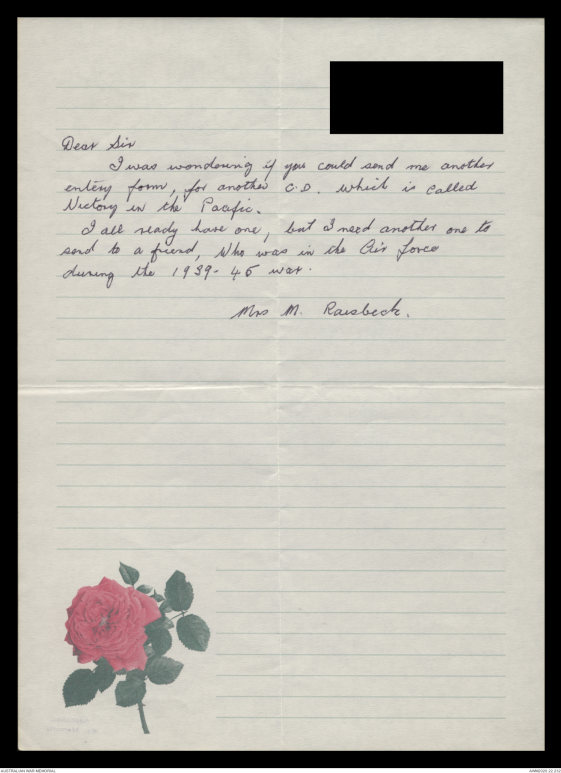 Dear Sir
I was wondering if you could send me another
entery form, for another C.D. which is called
Victory in the Pacific.
I all ready have one, but I need another one to
send to a friend, Who was in the Air force
during the 1939-45 war.
Mrs M. Raisbeck.
AUSTRALIAN WAR MEMORIAL